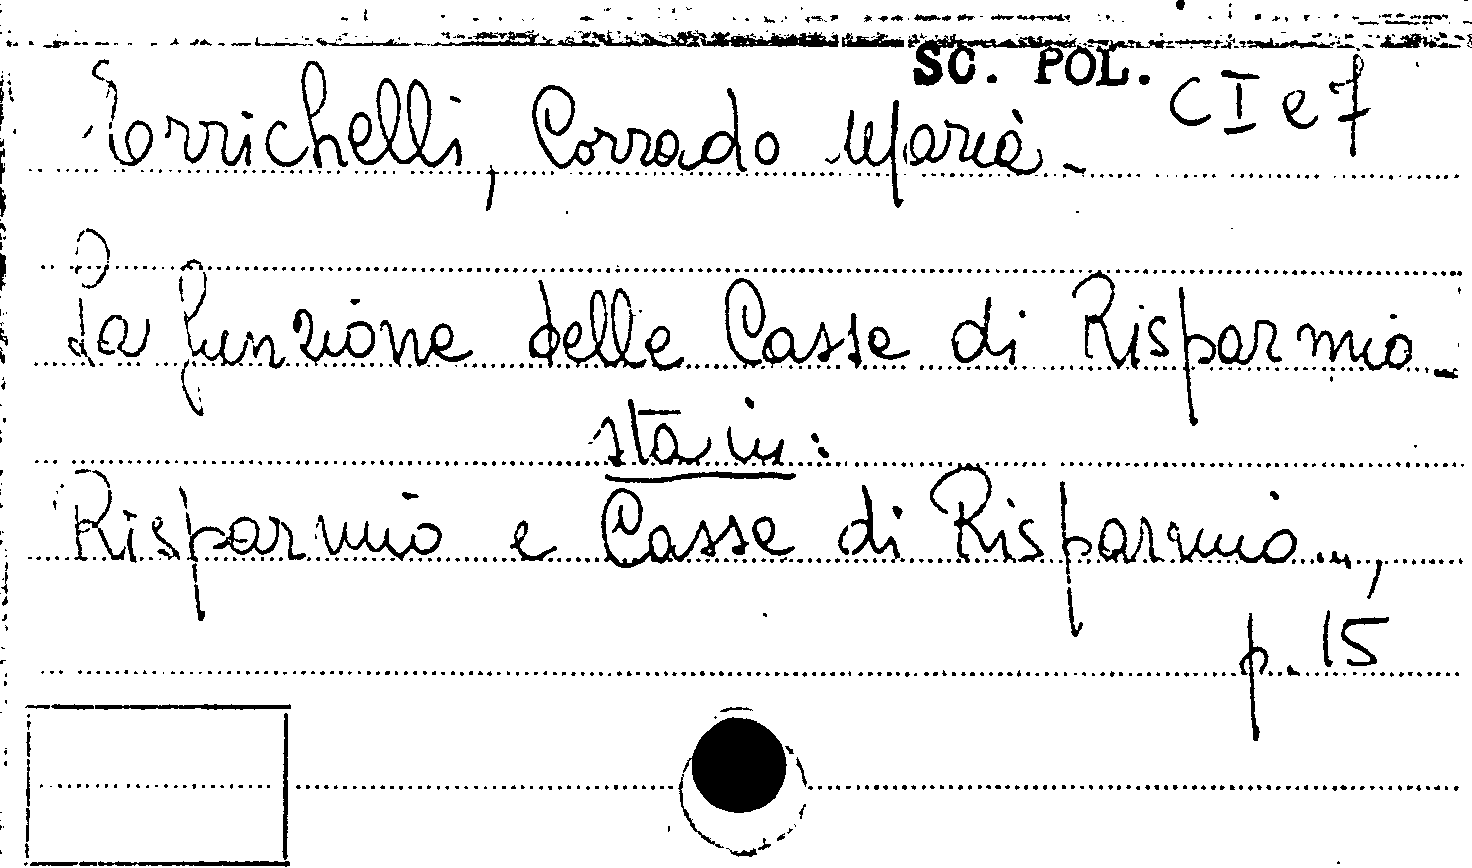 SC. POL. C I e 7
Errichelli, Corrado Maria -
La funzione delle Casse di Risparmio -
sta in:
Risparmio e Casse di Risparmio...,
p. 15